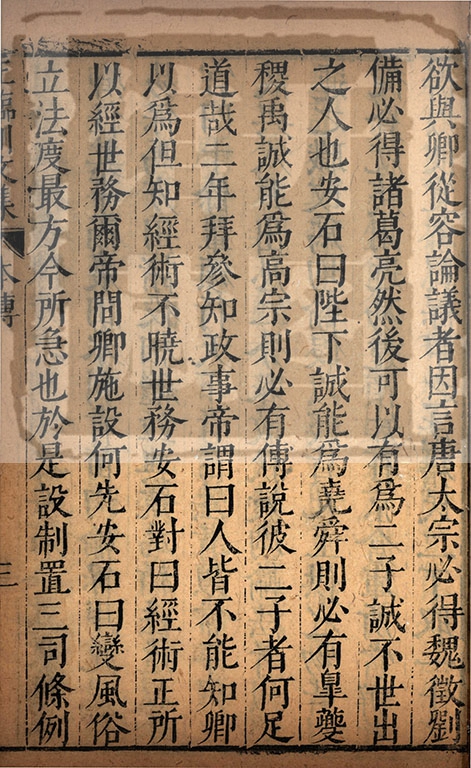 欲與卿從容論議者因言唐太宗必得魏徵劉
備必得諸葛亮然後可以有為二子誠不世出
之人也安石曰陛下誠能為堯舜則必有臯夔
稷禹誠能為高宗則必有傅說彼二子者何足
道哉二年拜參知政事帝謂曰人皆不能知卿
以為但知經術不曉世務安石對曰經術正所
以經世務爾帝問卿施設何先安石曰變風俗
立法度最方今所急也於是設制置三司條例
王臨川文集 本傳 三